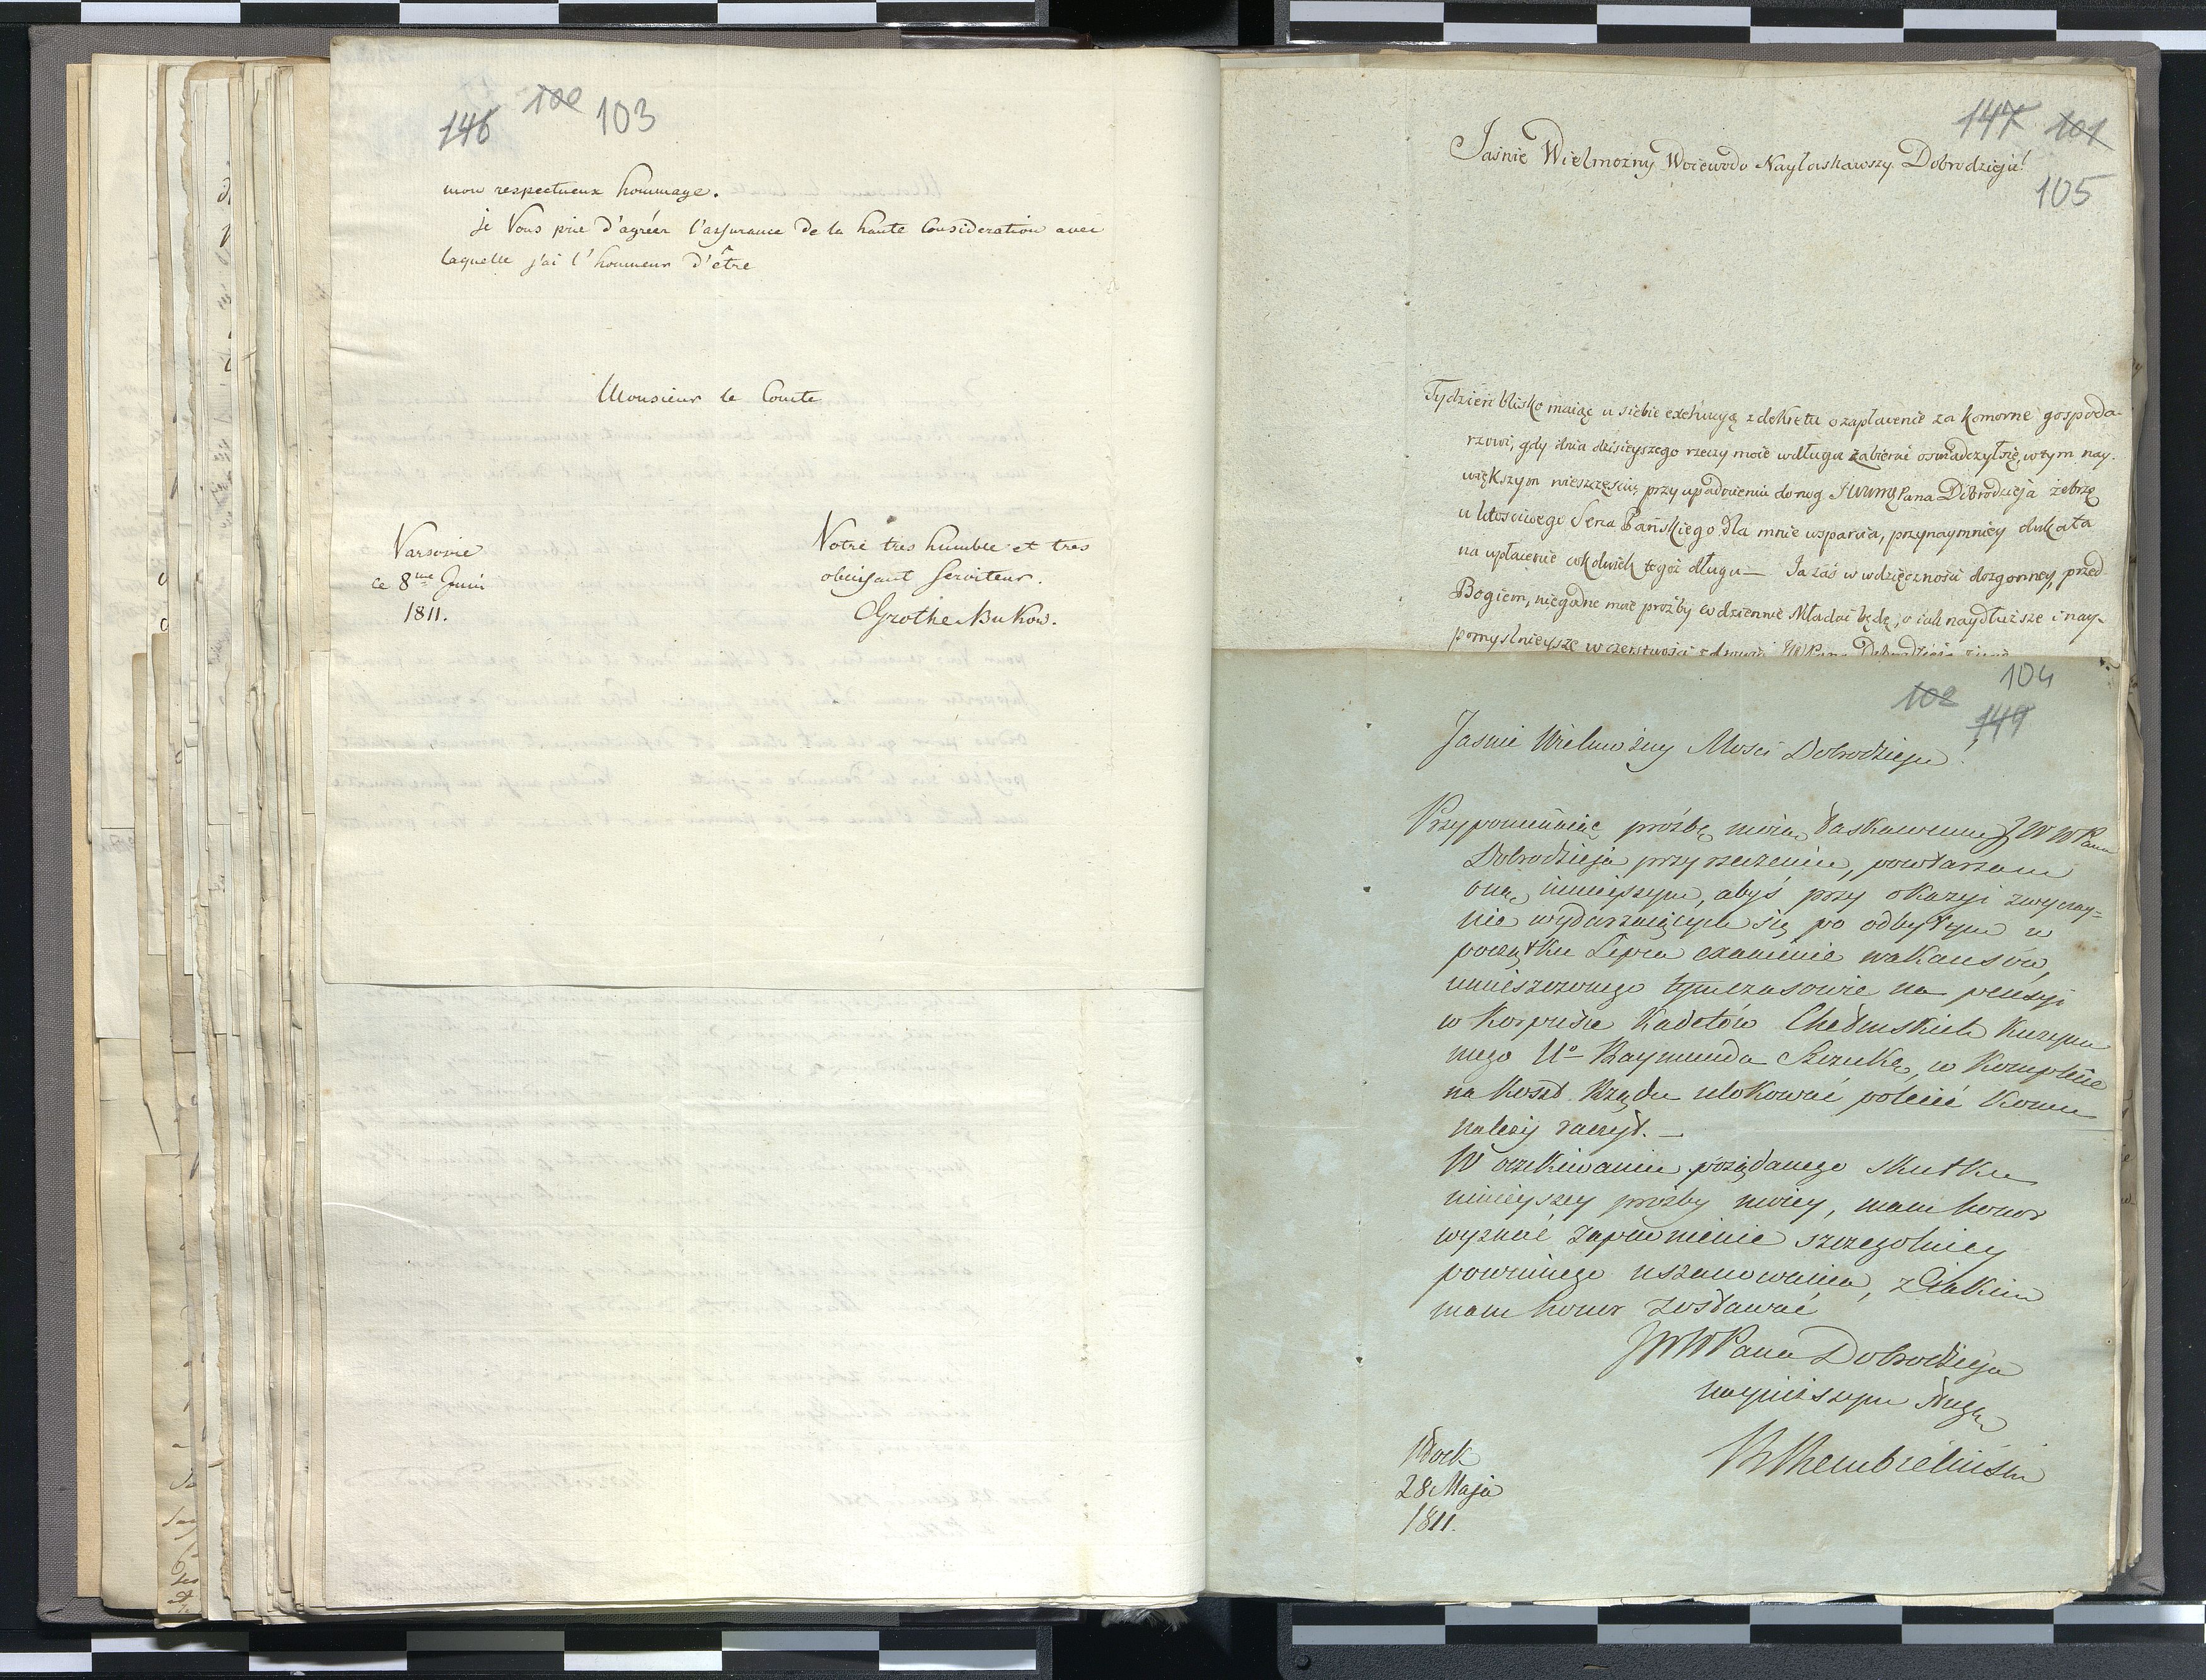 146 100 103
mon respectueux hommage.
je Vous prie d'agréer l'assurance de la haute Consideration avec
laquelle j'ai l'honneur d'être
Monsieur le Comte
Varsovie
ce 8me Juin
1811.
Votre tres humble et tres
obeissant serviteur.
Grothe Bukow.
147 101
105
Jaśnie Wielmożny Woiewodo Nayłaskawszy Dobrodzieju!
Tydzień blisko maiąc u siebie exekucyą z dekretu o zapłacenie za komorne gospoda-
rzowi, gdy dnia dzisieyszego rzeczy moie w długu zabierać oświadczył się, w tym nay-
większym nieszczęściu, przy upadnieniu do nog JWWMę Pana Dobrodzieja żebrzę
u litościwego Serca Pańskiego dla mnie wsparcia, przynaymniey dukata
na upłacenie cokolwiek tegoż długu — Ja zaś w wdzięczności dozgonney, przed
Bogiem, niegodne moie proźby codziennie składać będę, o iak naydłuższe i nay-
pomyslnieysze w czerstwości zdrowia Pana Dobrodzieja
104
102
149
Jaśnie Wielmożny Mości Dobrodzieju!
Przypominaiąc prośbę moią, łaskawemu JWWPana
Dobrodzieja przyrzeczeniu, powtarzam
onę ninieyszym, abyś przy okazyi zwyczay=
nie wydarzaiących się po odbytym w
początku Lipca examinie wakansów,
umieszczonego tymczasowie na pensyi
w Korpusie Kadetów Chełmskich Kuzyna
mego Uo Raymunda Szczukę, w Komplecie
na koszt Rządu ulokować polecić komu
należy raczył. —
W oczekiwaniu pożądanego skutku
ninieyszey prośby moiey, mam honor
wyznać zapewnienie szczególniey
powinnego uszanowania, z iakim
mam honor zostawać
JWWPana Dobrodzieja
nayniższym sługą
Rembieliński
Płock
28 Maja
1811.